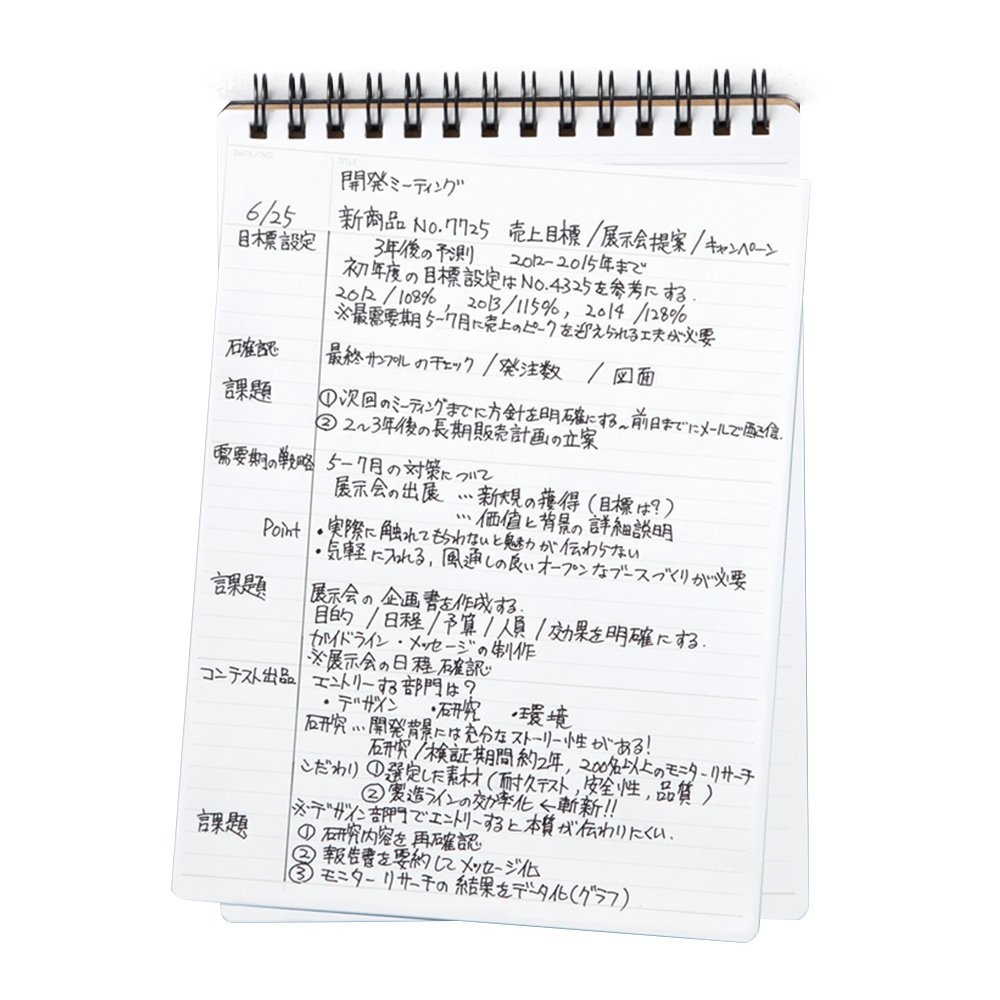 DATE/NO. TITLE
開発ミーティング
6/25 新商品 No.7725 売上目標/展示会提案/キャンペーン
目標設定 3年後の予測 2012-2015年まで
初年度の目標設定はNo.4325を参考にする.
2012/108%, 2013/115%, 2014/128%
※最需要期5-7月に売上のピークを迎えられる工夫が必要
確認 最終サンプルのチェック/発注数 / 図面
課題 ①次回のミーティングまでに方針を明確にする~前日までにメールで配信.
② 2~3年後の長期販売計画の立案
需要期の戦略 5-7月の対策について
展示会の出展 …新規の獲得(目標は?)
…価値と背景の詳細説明
Point ・実際に触れてもらわないと魅力が伝わらない
・気軽に入れる, 風通しの良いオープンなブースづくりが必要
課題 展示会の企画書を作成する.
目的/日程/予算/人員/効果を明確にする.
ガイドライン・メッセージの制作
※展示会の日程確認
コンテスト出品 エントリーする部門は?
・デザイン ・研究 ・環境
研究…開発背景には充分なストーリー性がある!
研究/検証期間約2年, 200名以上のモニターリサーチ
こだわり ①選定した素材(耐久テスト, 安全性, 品質)
②製造ラインの効率化 ←斬新!!
※デザイン部門でエントリーすると本質が伝わりにくい.
課題 ①研究内容を再確認
②報告書を要約してメッセージ化
③モニターリサーチの結果をデータ化(グラフ)